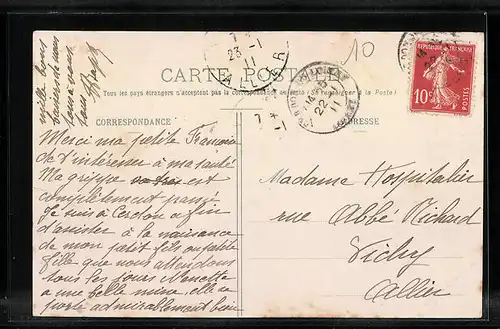 mille bons
baisers de nous
tous
10
7
23 -1
11
ALLIER
CARTE POSTALE
Tous les pays étrangers n'acceptent pas la correspondance au recto (Se renseigner à la Poste)
CORRESPONDANCE
ADRESSE
22
11
REPUBLIQUE FRANCAISE
10c
POSTES
Merci ma petite Francoise
de t'intéresser à ma santé
Ma grippe est
complètement passé.
Je suis à a fin
d'assister à la naissance
de mon petit fils ou petite
fille que nous attendons
tous les jours
a une belle mine elle se
porte admirablement bien
Madame Hospitalier
rue Abbé Richard
Vichy
Allier